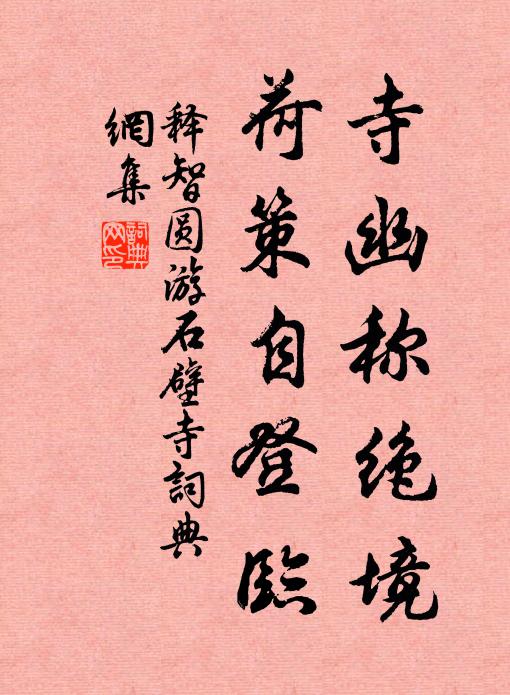 寺幽称绝境
荷策自登临
释智圆游石壁寺詞典
網集
詞典
网印